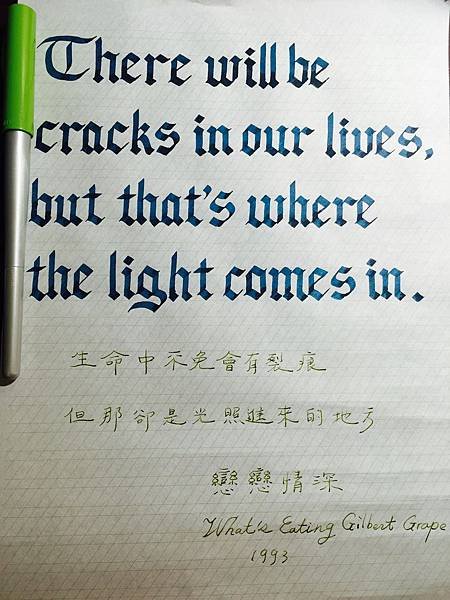 There will be
cracks in our lives,
but that's where
the light comes in.
生命中不免會有裂痕
但那卻是光照進來的地方
戀戀情深
What's Eating Gilbert Grape
1993